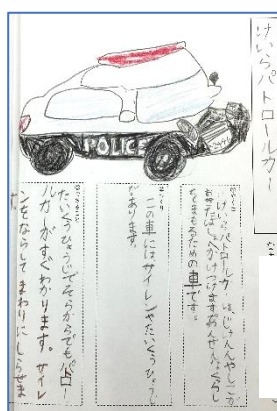 けいらパトロールカー
POLICE
やくわり
けいらパトロールカーは、じけんやじこが
おきたばしょへかけつけ
あんぜんなくらし
をまもるための車です。
つくり
この車にはサイレンやたいくうひょうじ
があります。
たいくうひょうじでそらからでもパトロー
ルカーがすぐわかります。サイレ
ンをならしてまわりにしらせま
す。